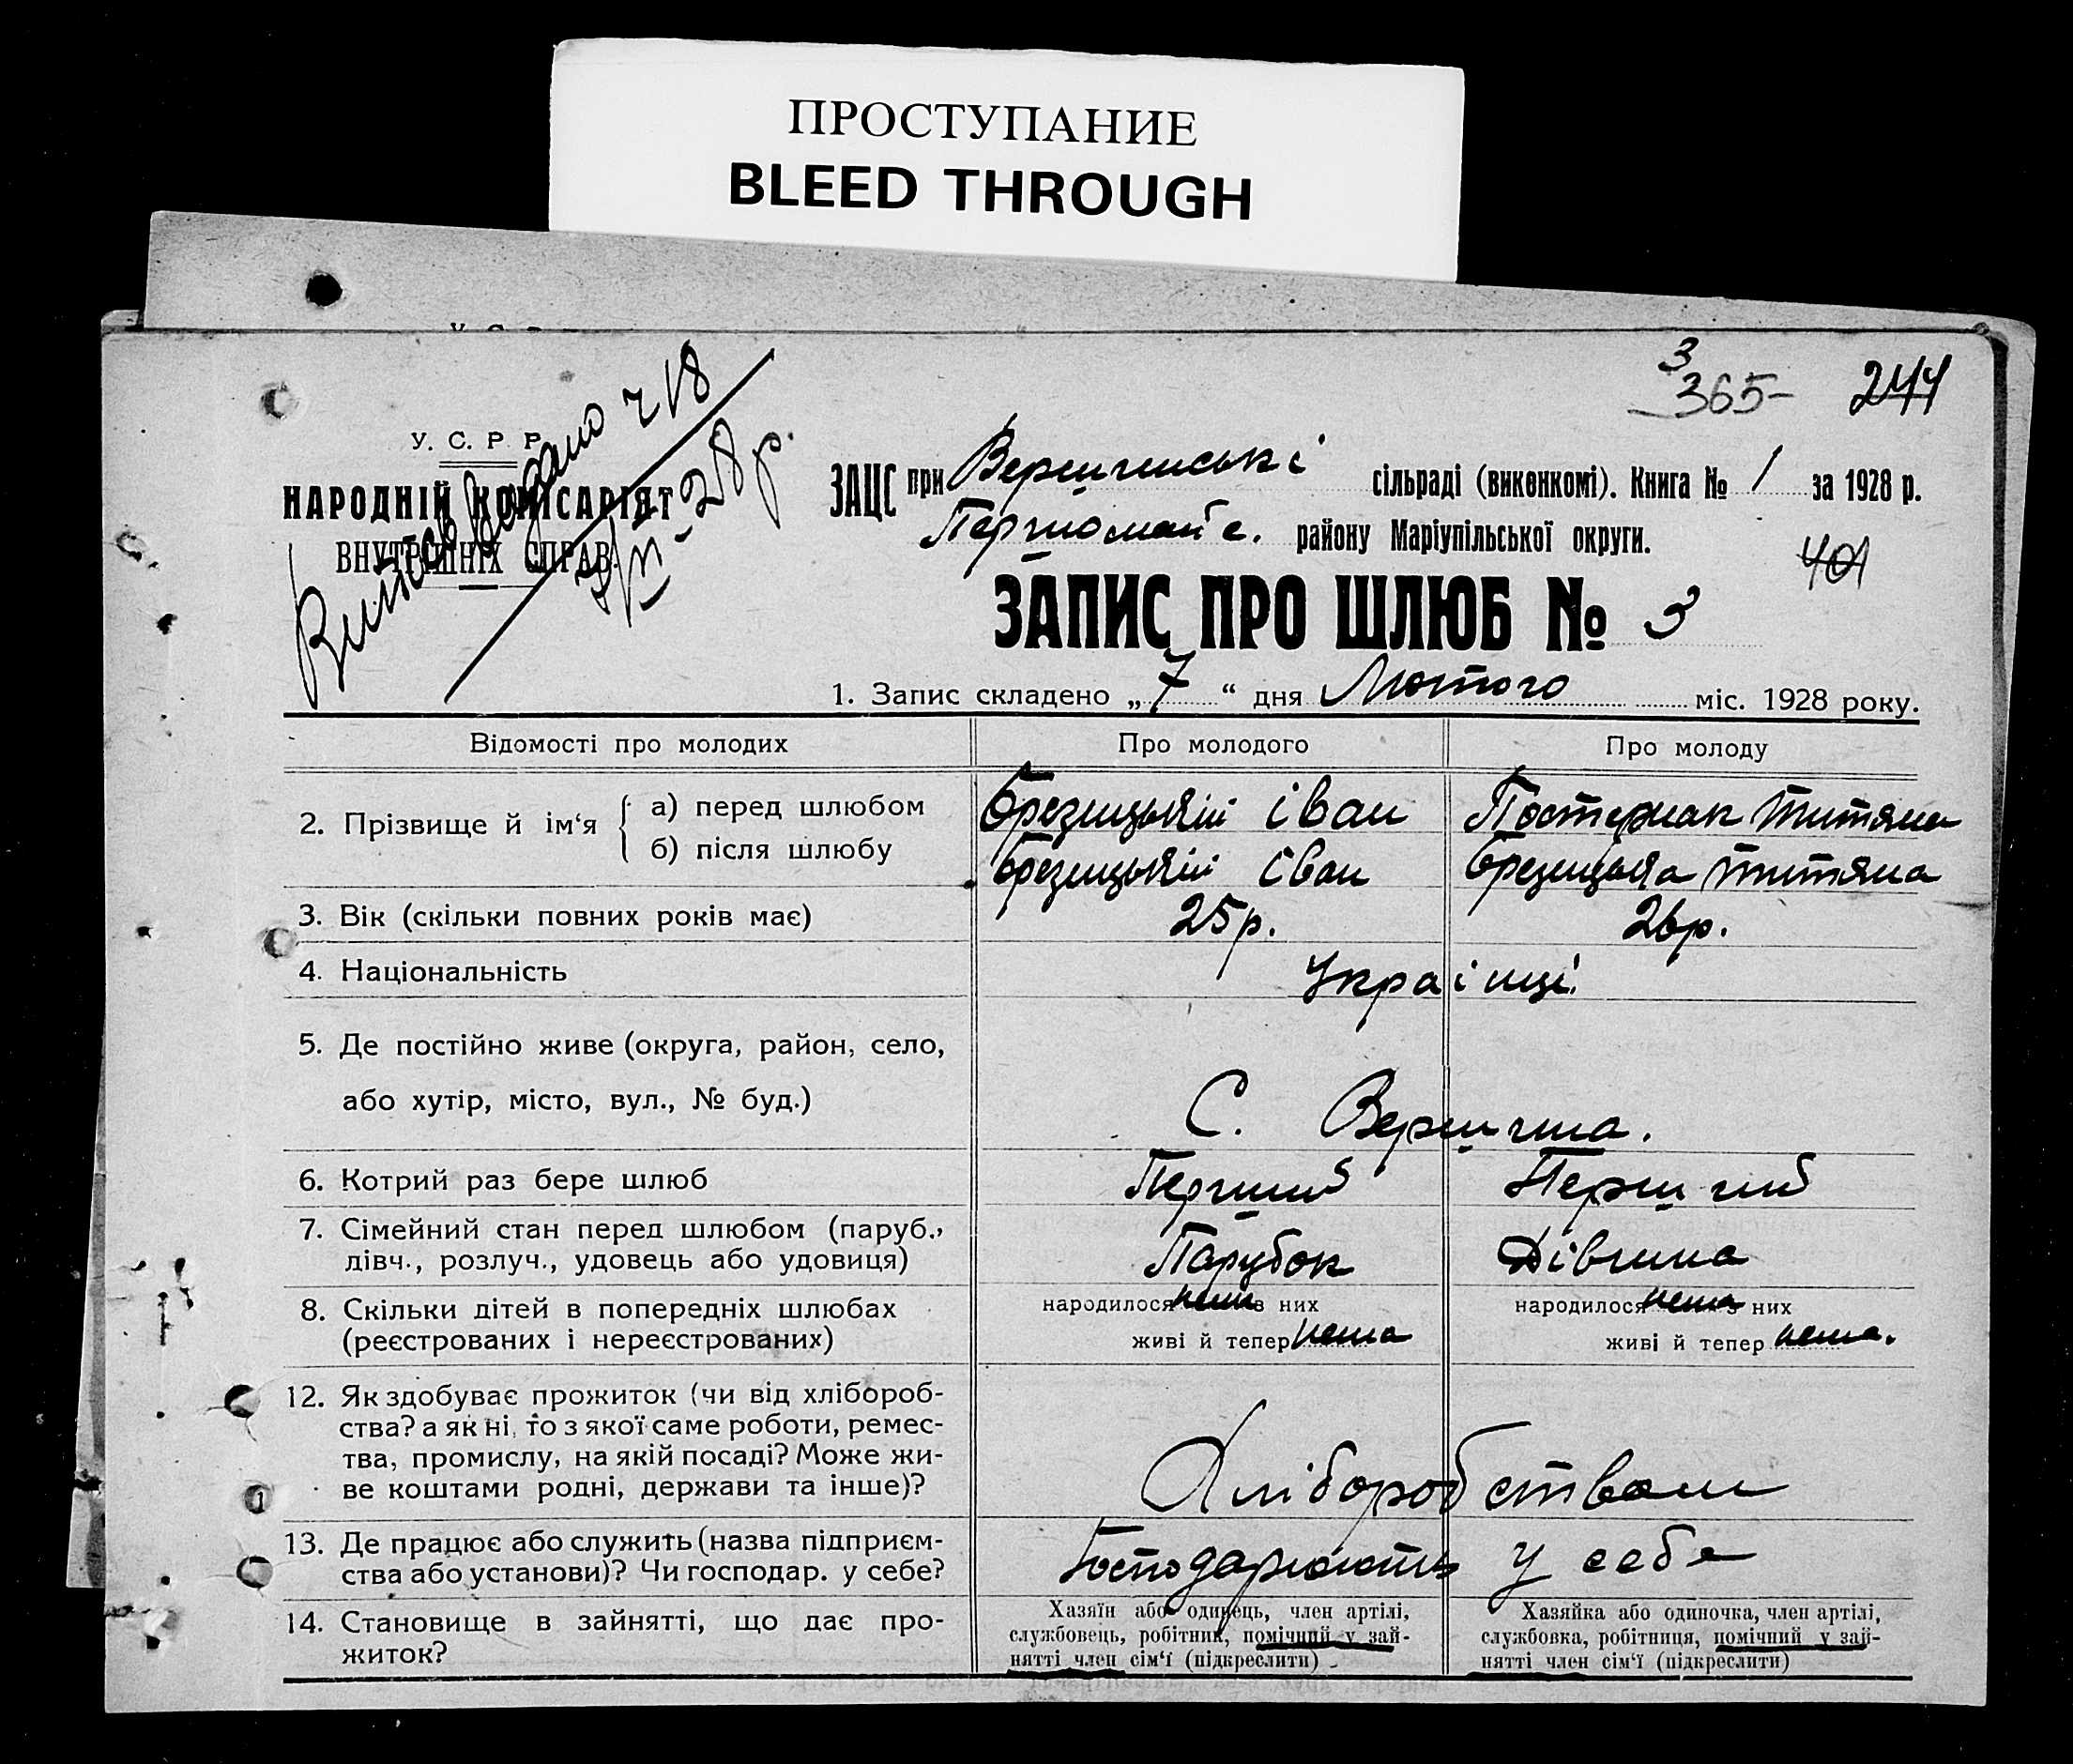 ПРОСТУПАНИЕ
BLEED THROUGH
3
365-
244
У. С. Р. Р.
НАРОДНІЙ КОМІСАРІЯТ
ВНУТРІШНІХ СПРАВ.
видано ч 18
28 р.
ЗАЦС при Вершинські сільраді (виконкомі). Книга № 1 за 1928 р.
Першомай с. району Маріупільської округи.
401
ЗАПИС ПРО ШЛЮБ № 3
1. Запис складено „7“ дня Лютого міс. 1928 року.
Відомості про молодих Про молодого Про молоду
2. Прізвище й ім‘я а) перед шлюбом Брезицький іван Постернак Титяна
б) після шлюбу Брезицький іван Брезицька Титяна
3. Вік (скільки повних років має) 25 р. 26 р.
4. Національність Українці
5. Де постійно живе (округа, район, село,
або хутір, місто, вул., № буд.) С. Вершина.
6. Котрий раз бере шлюб Перший Перший
7. Сімейний стан перед шлюбом (паруб.,
дівч., розлуч., удовець або удовиця) Парубок Дівчина
8. Скільки дітей в попередніх шлюбах народилося нема з них народилося нема з них
(реєстрованих і нереєстрованих) живі й тепер нема живі й тепер нема.
12. Як здобуває прожиток (чи від хлібороб-
ства? а як ні, то з якої саме роботи, ремес-
тва, промислу, на якій посаді? Може жи-
ве коштами родні, держави та інше)? Хліборобством
13. Де працює або служить (назва підприєм-
ства або установи)? Чи господар. у себе? Господарюють у себе
14. Становище в зайнятті, що дає про-
житок?
Хазяїн або одинець, член артілі,
службовець, робітник, помічний у зай-
нятті член сім‘ї (підкреслити)
Хазяйка або одиночка, член артілі,
службовка, робітниця, помічний у зай-
нятті член сім‘ї (підкреслити)